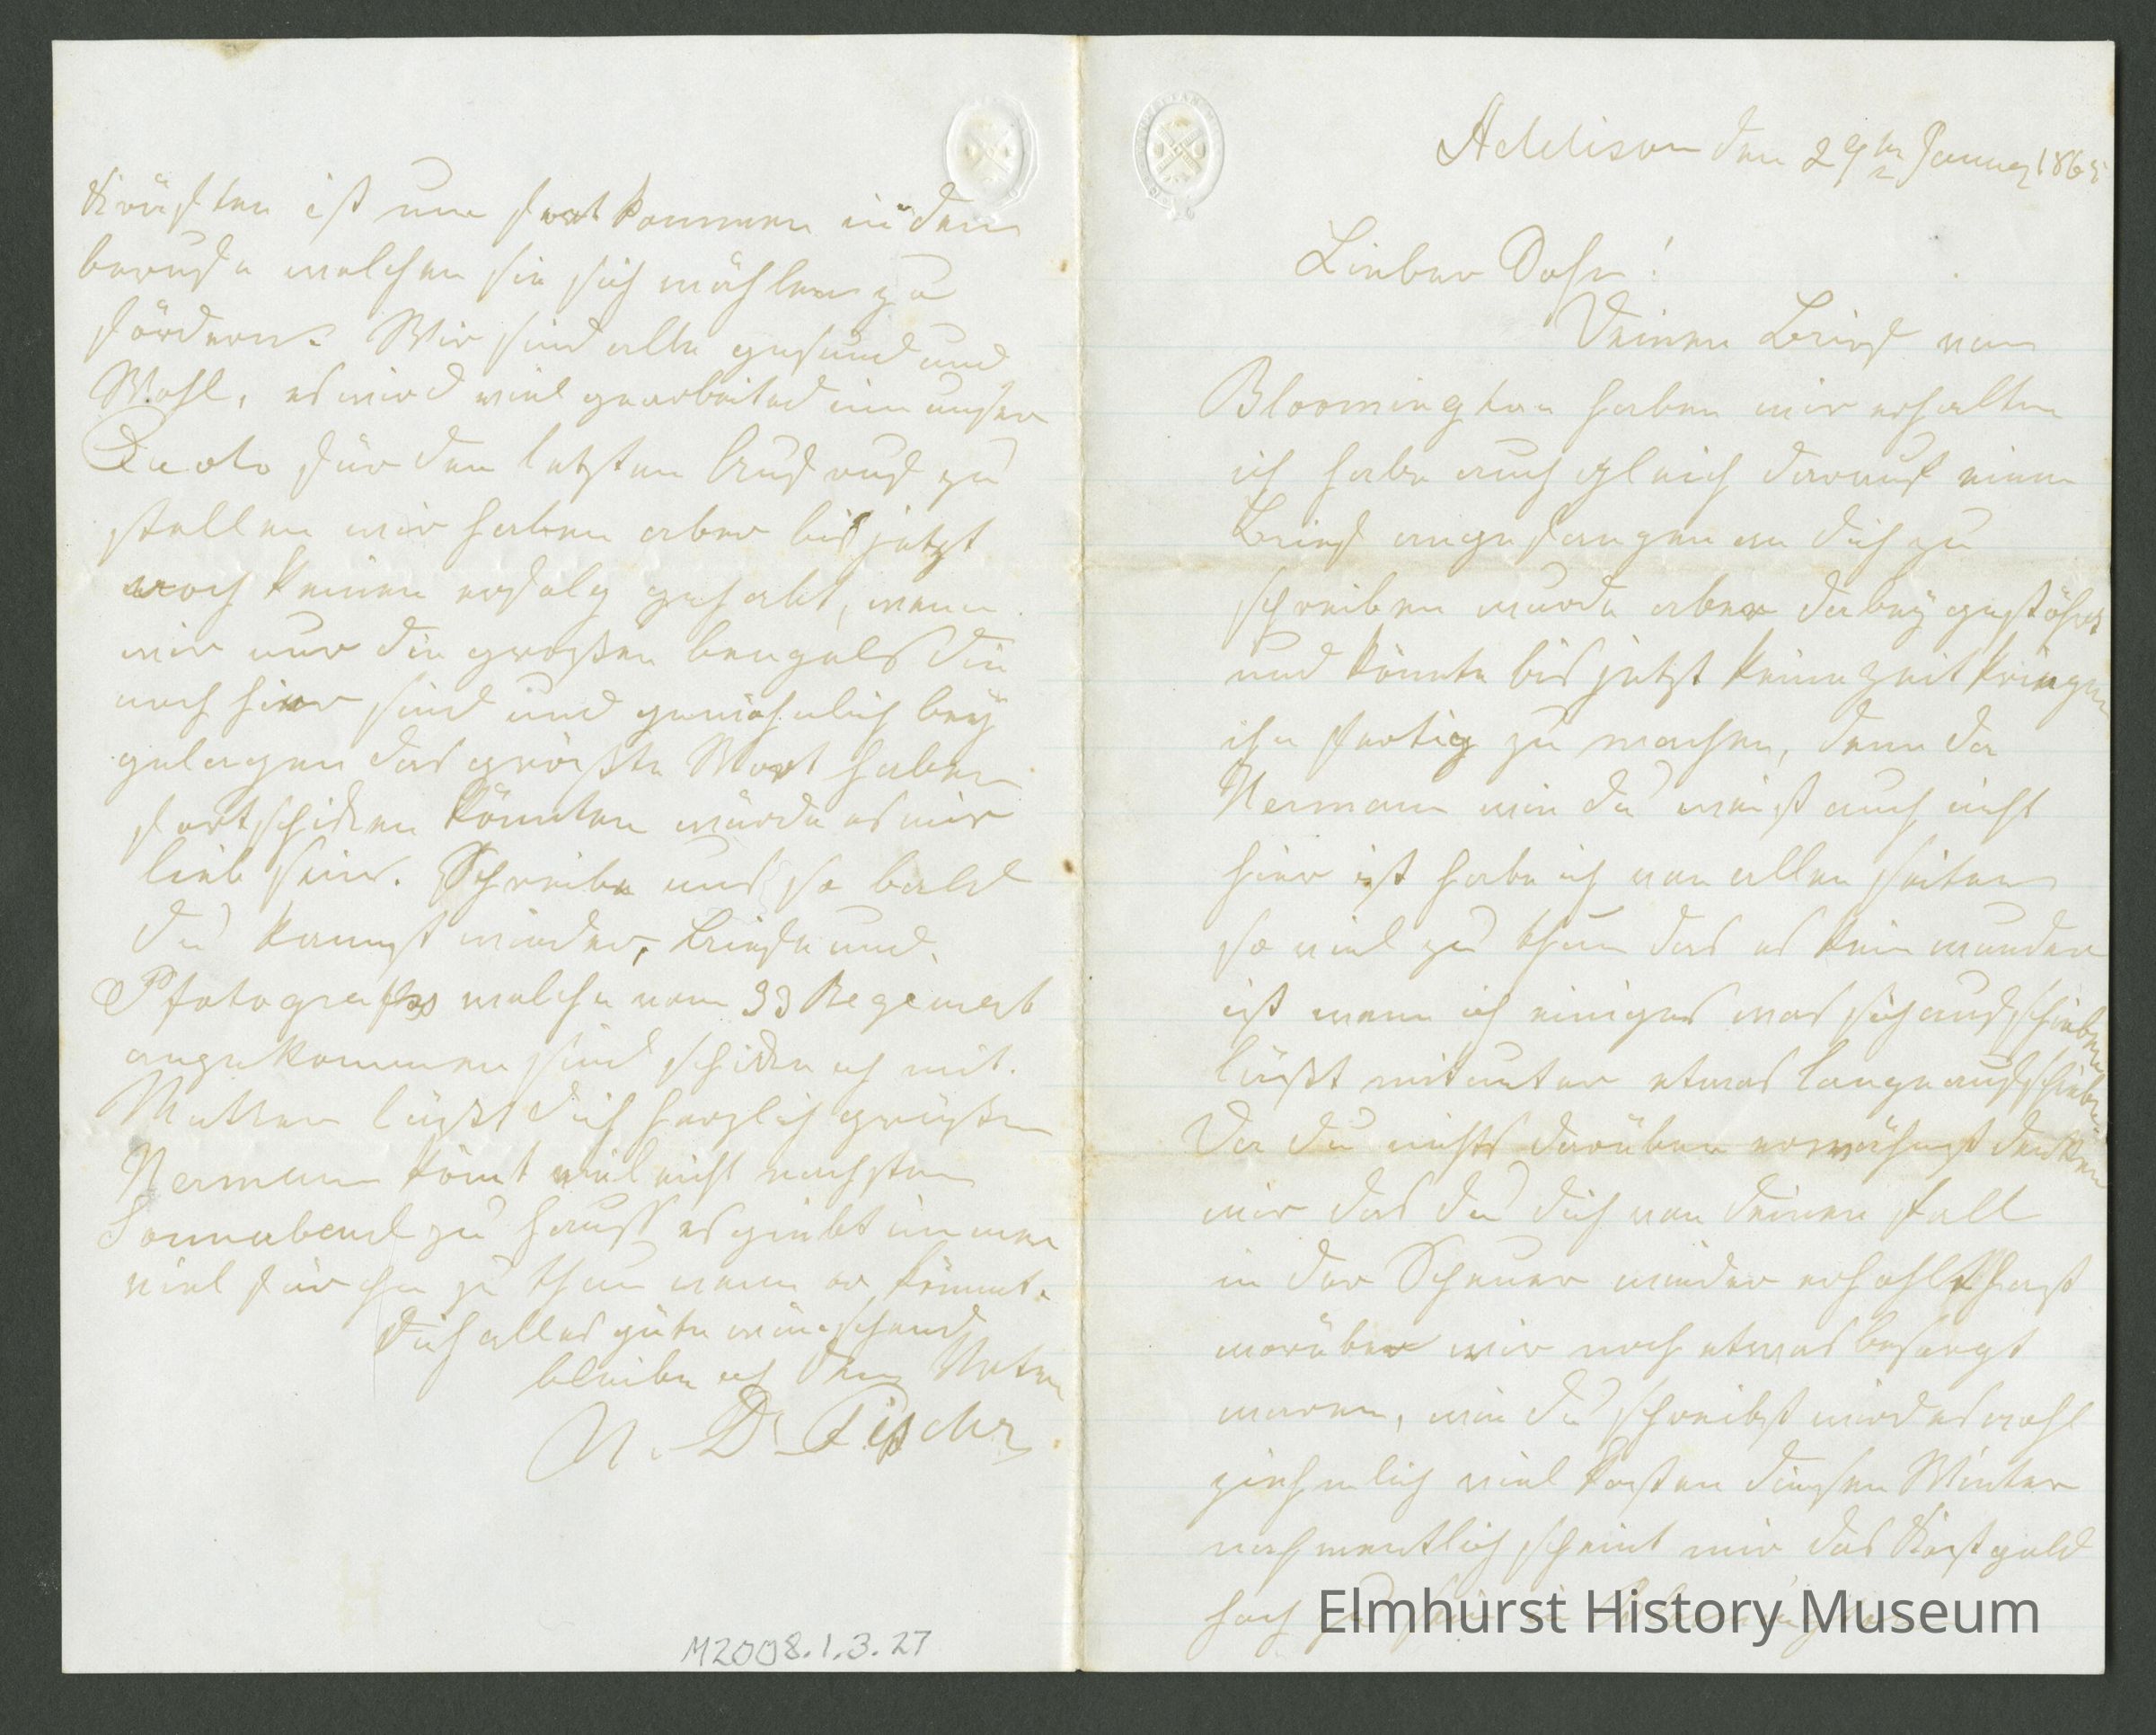 Addison den 29ten Januar 1865
Lieber Sohn!
Deinen Brief von
Bloomington haben wir erhalten
ich habe auch gleich darauf einen
Brief angefangen an dich zu
schreiben wurde aber dabey gestöhrt
und könnte bis jetzt keine Zeit kriegen
ihn fertig zu machen, denn da
Herman wie du weist auch nicht
hier ist habe ich von allen seiten
so viel zu thun das es kein wunder
ist wenn ich einiges was sich aufschieben
läßt mitunter etwas lange aufschiebe
Da du nichts darüber erwähnst denken
wir das du dich von deinen fall
in der Scheuer wieder erhohlt hast
worüber wir noch etwas besorgt
waren, wie du schreibst wird es wohl
ziehmlich viel kosten diesen Winter
nahmentlich scheint mir das Kostgeld
hoch zu sein in
Kräften ist um fortkommen in den
berufe welchen sie sich wählen zu
fördern. Wir sind alle gesund und
Wohl, es wird viel gearbeited um unser
Quoto für den letzten Aufruf zu
stellen wir haben aber bis jetzt
noch keinen erfolg gehabt, wenn
wir nur die großen bengels die
noch hier sind und gewöhnlich bey
gelagen das größte Wort haben
fortschicken könnten würde es mir
lieb sein. Schreibe uns so bald
du kannst wieder, briefe und
Pfotografs welche vom 33 Regement
angekommen sind schicke ich mit.
Mutter läßt dich herzlich grüßen
Herman kömt vieleicht nachsten
Sonnabend zu hauss es giebt immer
viel für ihn zu thun wenn er kömmt.
Dich alles gute wünschend
bleibe ich Dein Vater
H. D. Fischer
M2008.1.3.27
Elmhurst History Museum